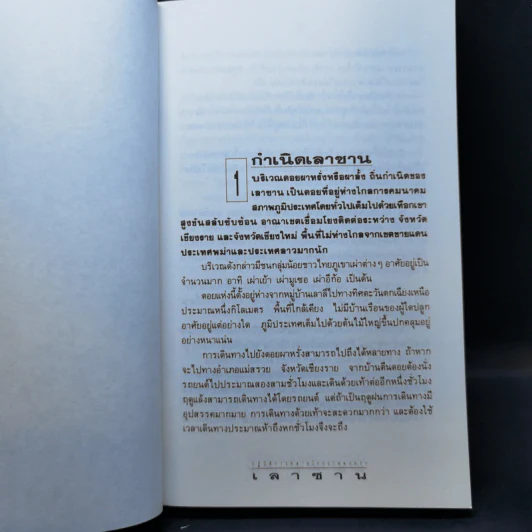 กำเนิดเลาซาน
1
บริเวณดอยผาหรั่งหรือผาลั้ง ถิ่นกำเนิดของ
เลาซาน เป็นดอยที่อยู่ห่างไกลการคมนาคม
สภาพภูมิประเทศโดยทั่วไปเต็มไปด้วยเทือกเขา
สูงชันสลับซับซ้อน อาณาเขตเชื่อมโยงติดต่อระหว่าง จังหวัด
เชียงราย และจังหวัดเชียงใหม่ พื้นที่ไม่ห่างไกลจากเขตชายแดน
ประเทศพม่าและประเทศลาวมากนัก
บริเวณดังกล่าวมีชนกลุ่มน้อยชาวไทยภูเขาเผ่าต่างๆ อาศัยอยู่เป็น
จำนวนมาก อาทิ เผ่าเย้า เผ่ามูเซอ เผ่าอีก้อ เป็นต้น
ดอยแห่งนี้ตั้งอยู่ห่างจากหมู่บ้านเลาลี่ไปทางทิศตะวันตกเฉียงเหนือ
ประมาณหนึ่งกิโลเมตร พื้นที่ใกล้เคียง ไม่มีบ้านเรือนของผู้ใดปลูก
อาศัยอยู่แต่อย่างใด ภูมิประเทศเต็มไปด้วยต้นไม้ใหญ่ขึ้นปกคลุมอยู่
อย่างหนาแน่น
การเดินทางไปยังดอยผาหรั่งสามารถไปถึงได้หลายทาง ถ้าหาก
จะไปทางอำเภอแม่สรวย จังหวัดเชียงราย จากบ้านตีนดอยต้องนั่ง
รถยนต์ไปประมาณสองสามชั่วโมงและเดินด้วยเท้าต่ออีกหนึ่งชั่วโมง
ฤดูแล้งสามารถเดินทางได้โดยรถยนต์ แต่ถ้าเป็นฤดูฝนการเดินทางมี
อุปสรรคมากมาย การเดินทางด้วยเท้าจะสะดวกมากกว่า และต้องใช้
เวลาเดินทางประมาณห้าถึงหกชั่วโมงจึงจะถึง
เลาซาน